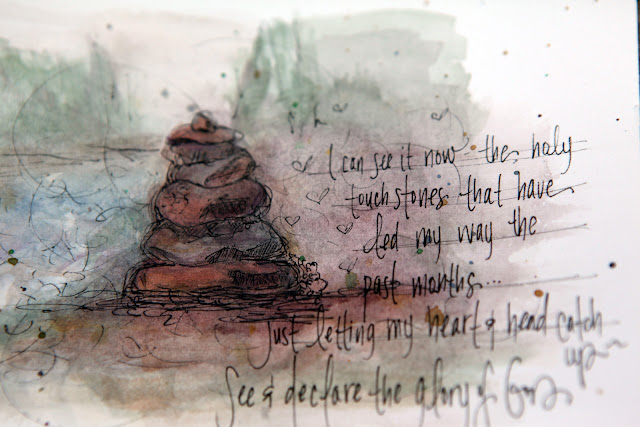 I can see it now the holy
touchstones that have
led my way the
past months...
Just letting my heart & head catch
up~
See & declare the glory of God